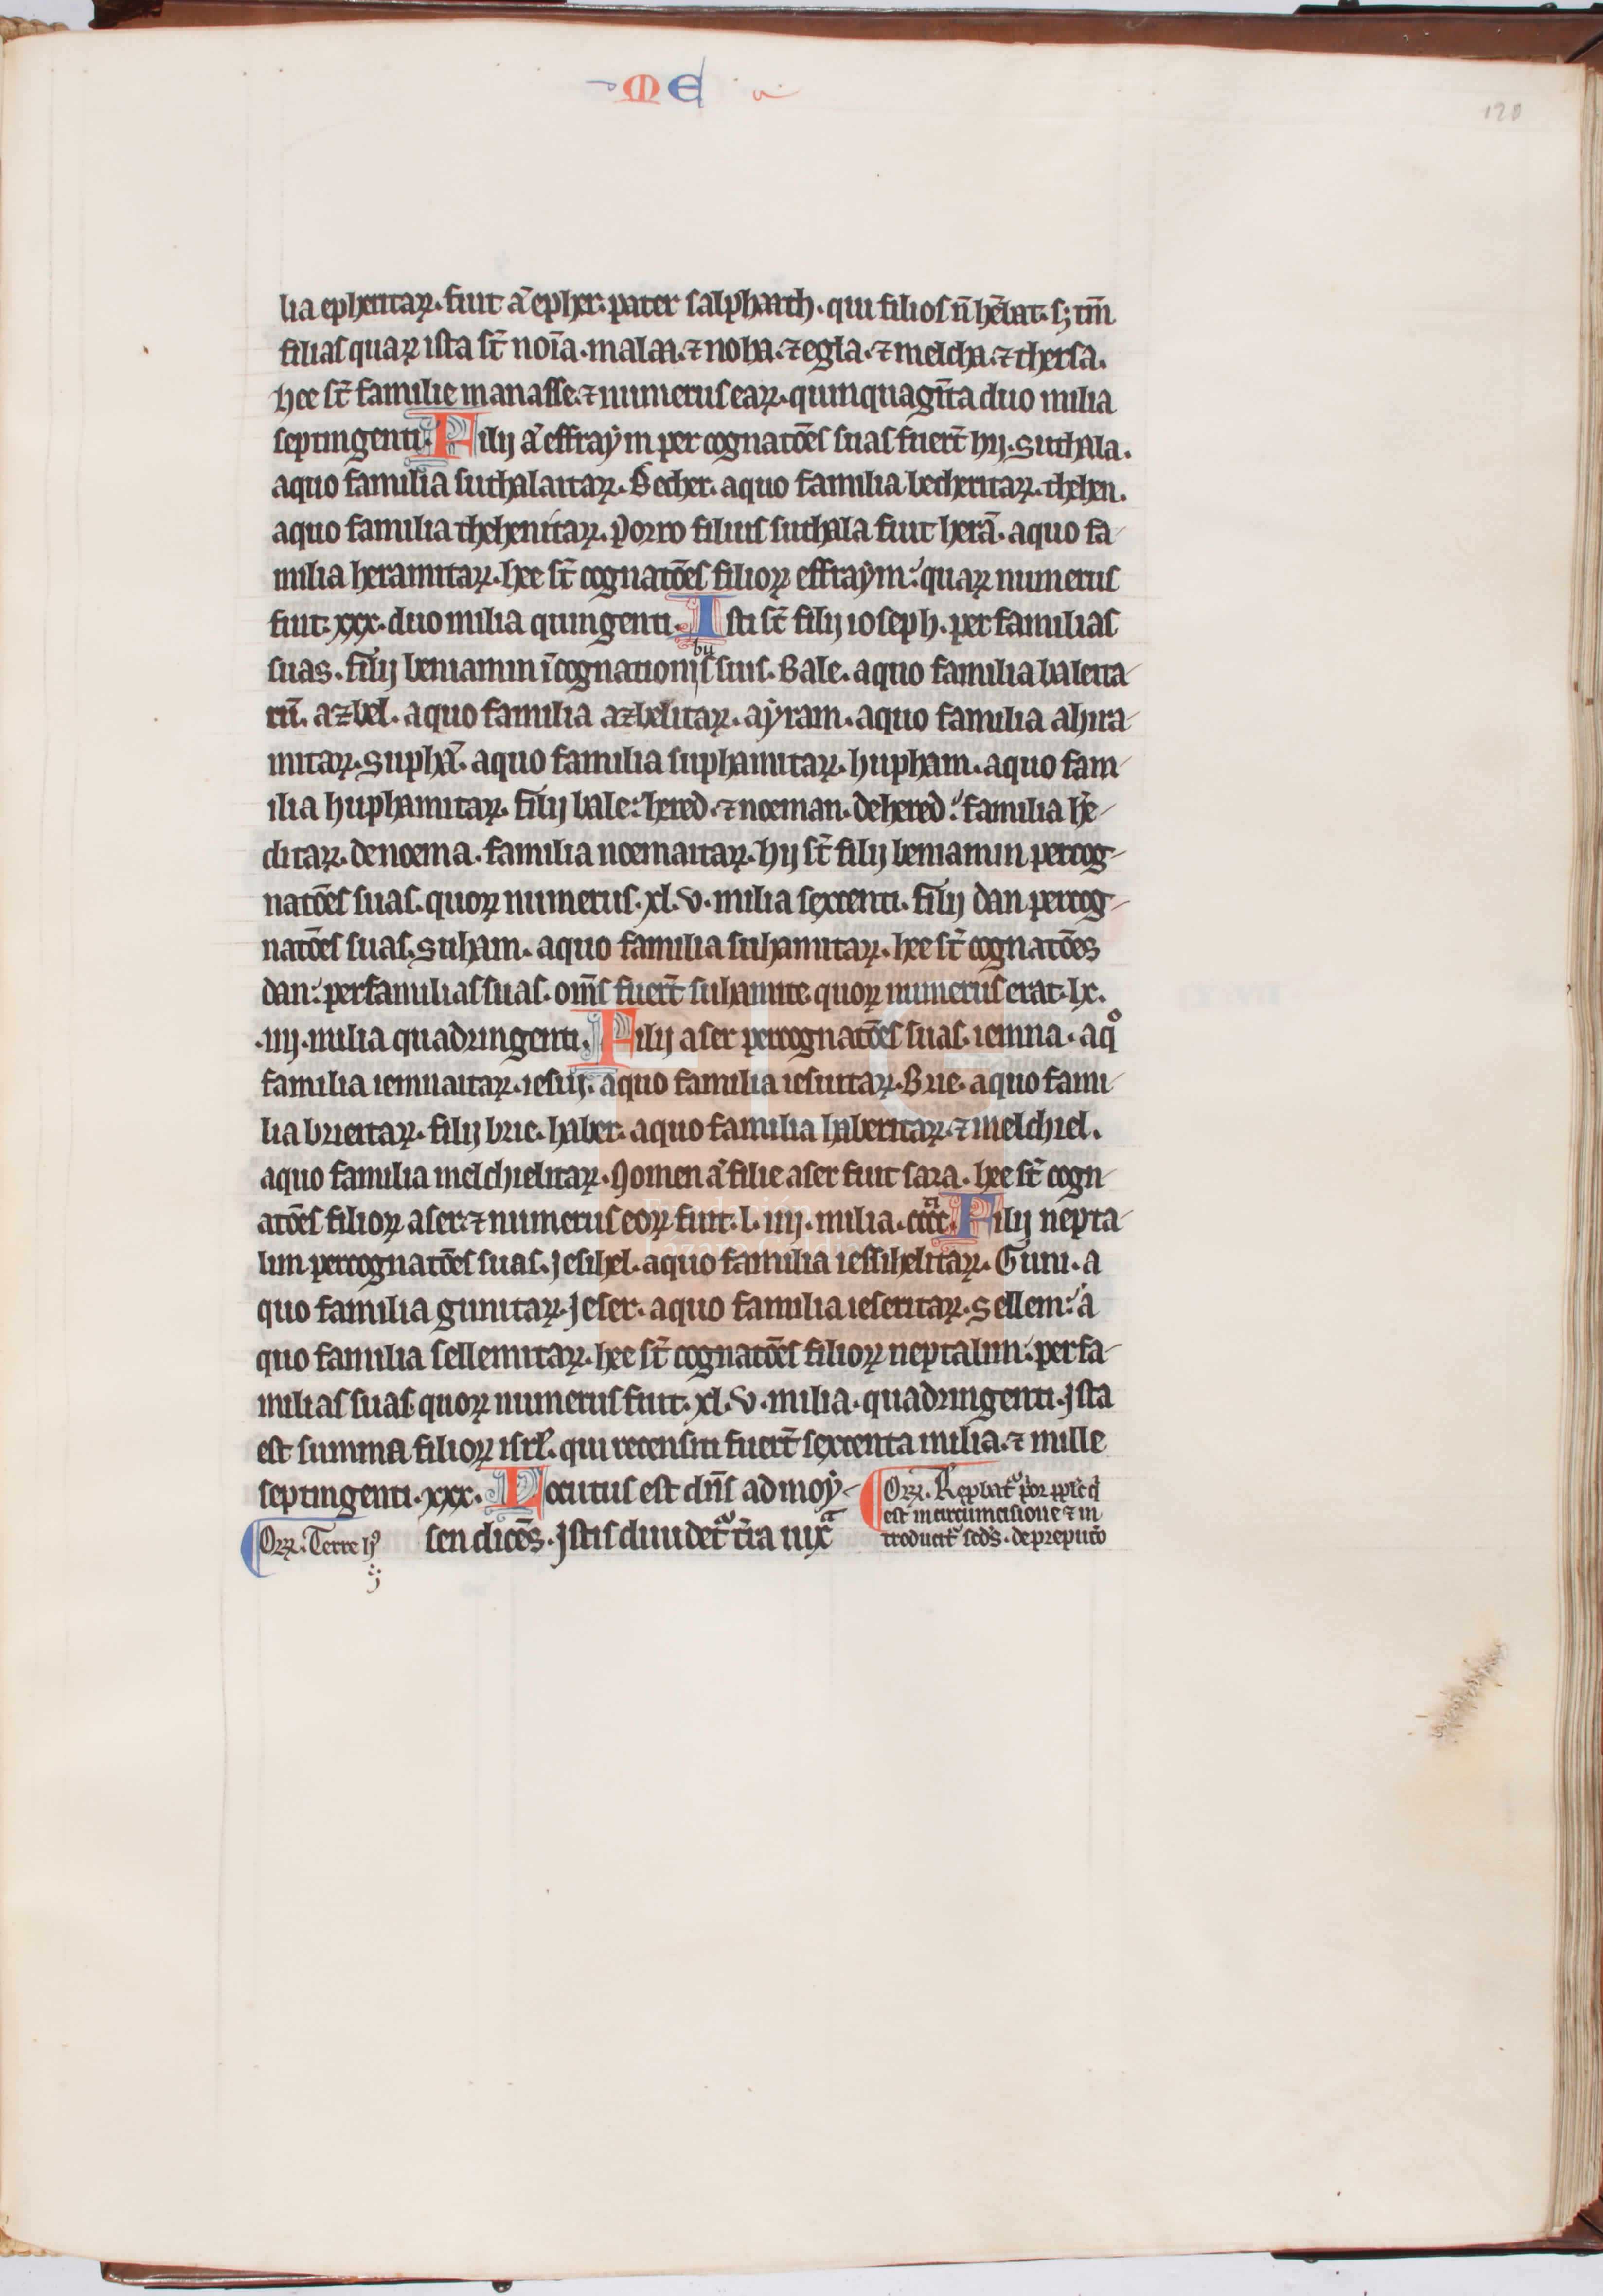 ME
120
lia epheritaꝝ. fuit aͣ epher. pater salphaath. qui filios n̄ hēbat. sꝫ tm̄
filias quaꝝ ista st̄ noīa. malaa. ⁊ noha. ⁊ egla. ⁊ melcha. ⁊ thersa.
hee st̄ familie manasse. ⁊ numerus eaꝝ. quinquagīta duo milia
septingenti. Filij aͣ effraẏm per cognatōes suas fuerт̄ hij. suthala.
aquo familia suthalaitaꝝ. Becher. aquo familia becheritaꝝ. thehen.
aquo familia thehenitaꝝ. Porro filius suthala fuit herā. aquo fa-
milia heramitaꝝ. hee st̄ cognatōes filioꝝ effraẏm: quaꝝ numerus
fuit. xxx. duo milia quingenti. Isti st̄ filij ioseph. per familias
suas. filij beniamin ī cognationibus suis. Bale. aquo familia baleita-
rū. azbel. aquo familia azbelitaꝝ. aẏram. aquo familia ahira-
mitaꝝ. suphā. aquo familia suphamitaꝝ. hupham. aquo fam-
ilia huphamitaꝝ. filij bale: hered. ⁊ noeman. dehered: familia he-
ditaꝝ. denoema. familia noemaitaꝝ. hij st̄ filij beniamin percog-
natōes suas. quoꝝ numerus. xl. v. milia sexcenti. filij dan percog-
natōes suas. suham. aquo familia suhamitaꝝ. hee st̄ cognatōes
dan: perfamilias suas. om̄s fuerт̄ suhamite. quoꝝ numerus erat. lx.
.iiij. milia quadringenti. Filij aser percognatōes suas. iemna. aqͦ
familia iemnaitaꝝ. iesui. aquo familia iesuitaꝝ. Brie. aquo fami-
lia brieitaꝝ. filij brie. haber. aquo familia haberitaꝝ. ⁊ melchiel.
aquo familia melchielitaꝝ. Nomen aͣ filie aser fuit sara. hee st̄ cogn-
atōes filioꝝ aser. ⁊ numerus eoꝝ fuit. l. iiij. milia. cccc. Filij nepta-
lim percognatōes suas. Jesihel. aquo familia iessihelitaꝝ. Guni. a
quo familia gunitaꝝ. Jeser. aquo familia ieseritaꝝ. sellem: a
quo familia sellemitaꝝ. hee st̄ cognatōes filioꝝ neptalim: perfa-
milias suas. quoꝝ numerus fuit. xl. v. milia. quadringenti. Ista
est summa filioꝝ isrł. qui recensiti fuerт̄ sexcenta milia. ⁊ mille
septingenti. xxx. Locutus est dn̄s ad moẏ-
sen dicēs. Istis diuidet᷑ tr̄a iuxͣ
Orꝫ. Terre
est incircumcisione ⁊ in
troducit᷑ scd̄s. deprepucio
Fundación
Lázaro Galdiano